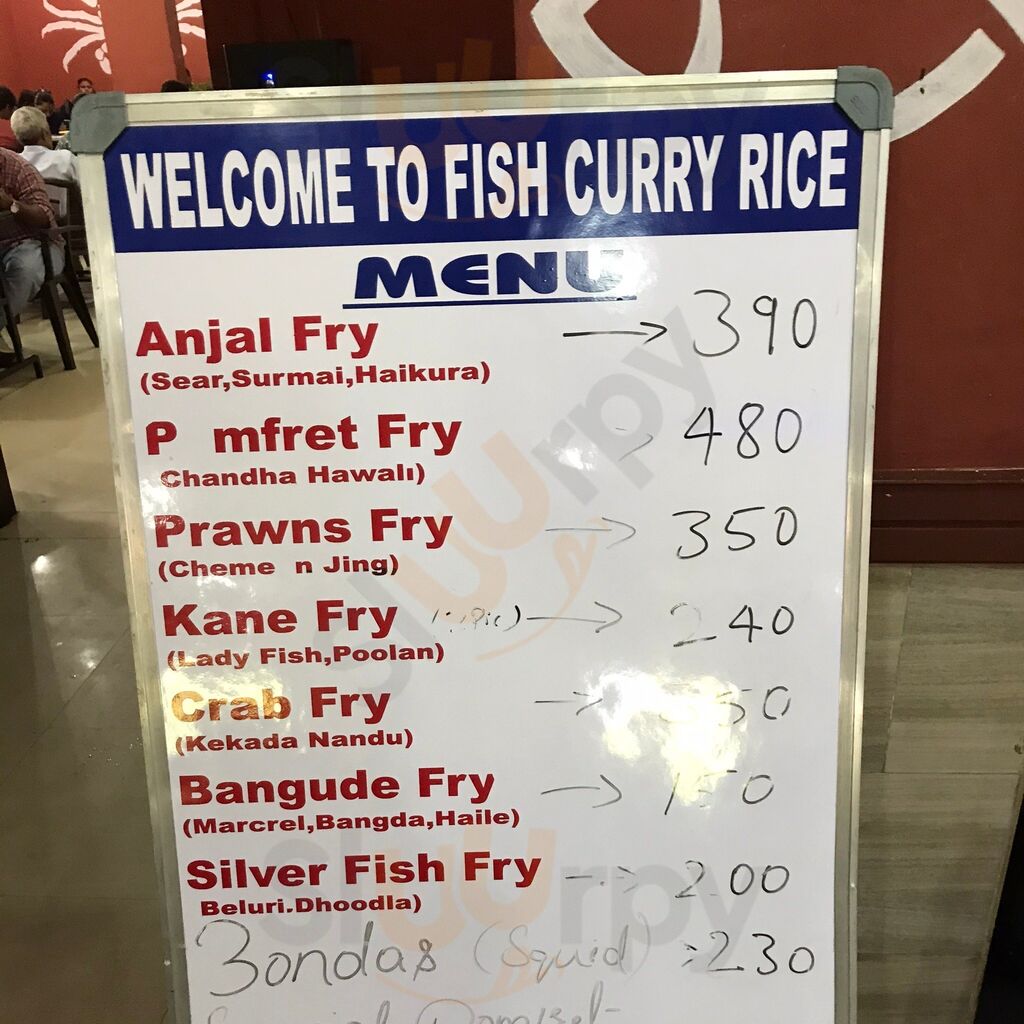 WELCOME TO FISH CURRY RICE
MENU
Anjal Fry → 390
(Sear,Surmai,Haikura)
P mfret Fry → 480
Chandha Hawali)
Prawns Fry → 350
(Cheme n Jing)
Kane Fry → 240
(Lady Fish,Poolan)
Crab Fry →
(Kekada Nandu)
Bangude Fry →
(Marcrel,Bangda,Haile)
Silver Fish Fry → 200
Beluri.Dhoodla)
Bondas (Squid) 230
slurpy
slurpy